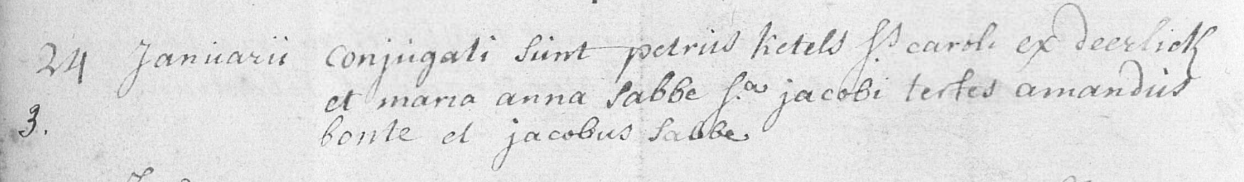 24 Januarii conjugati sunt petrus ketels fs caroli ex deerlick
et maria anna sabbe fa jacobi testes amandus
3. bonte et jacobus sabbe